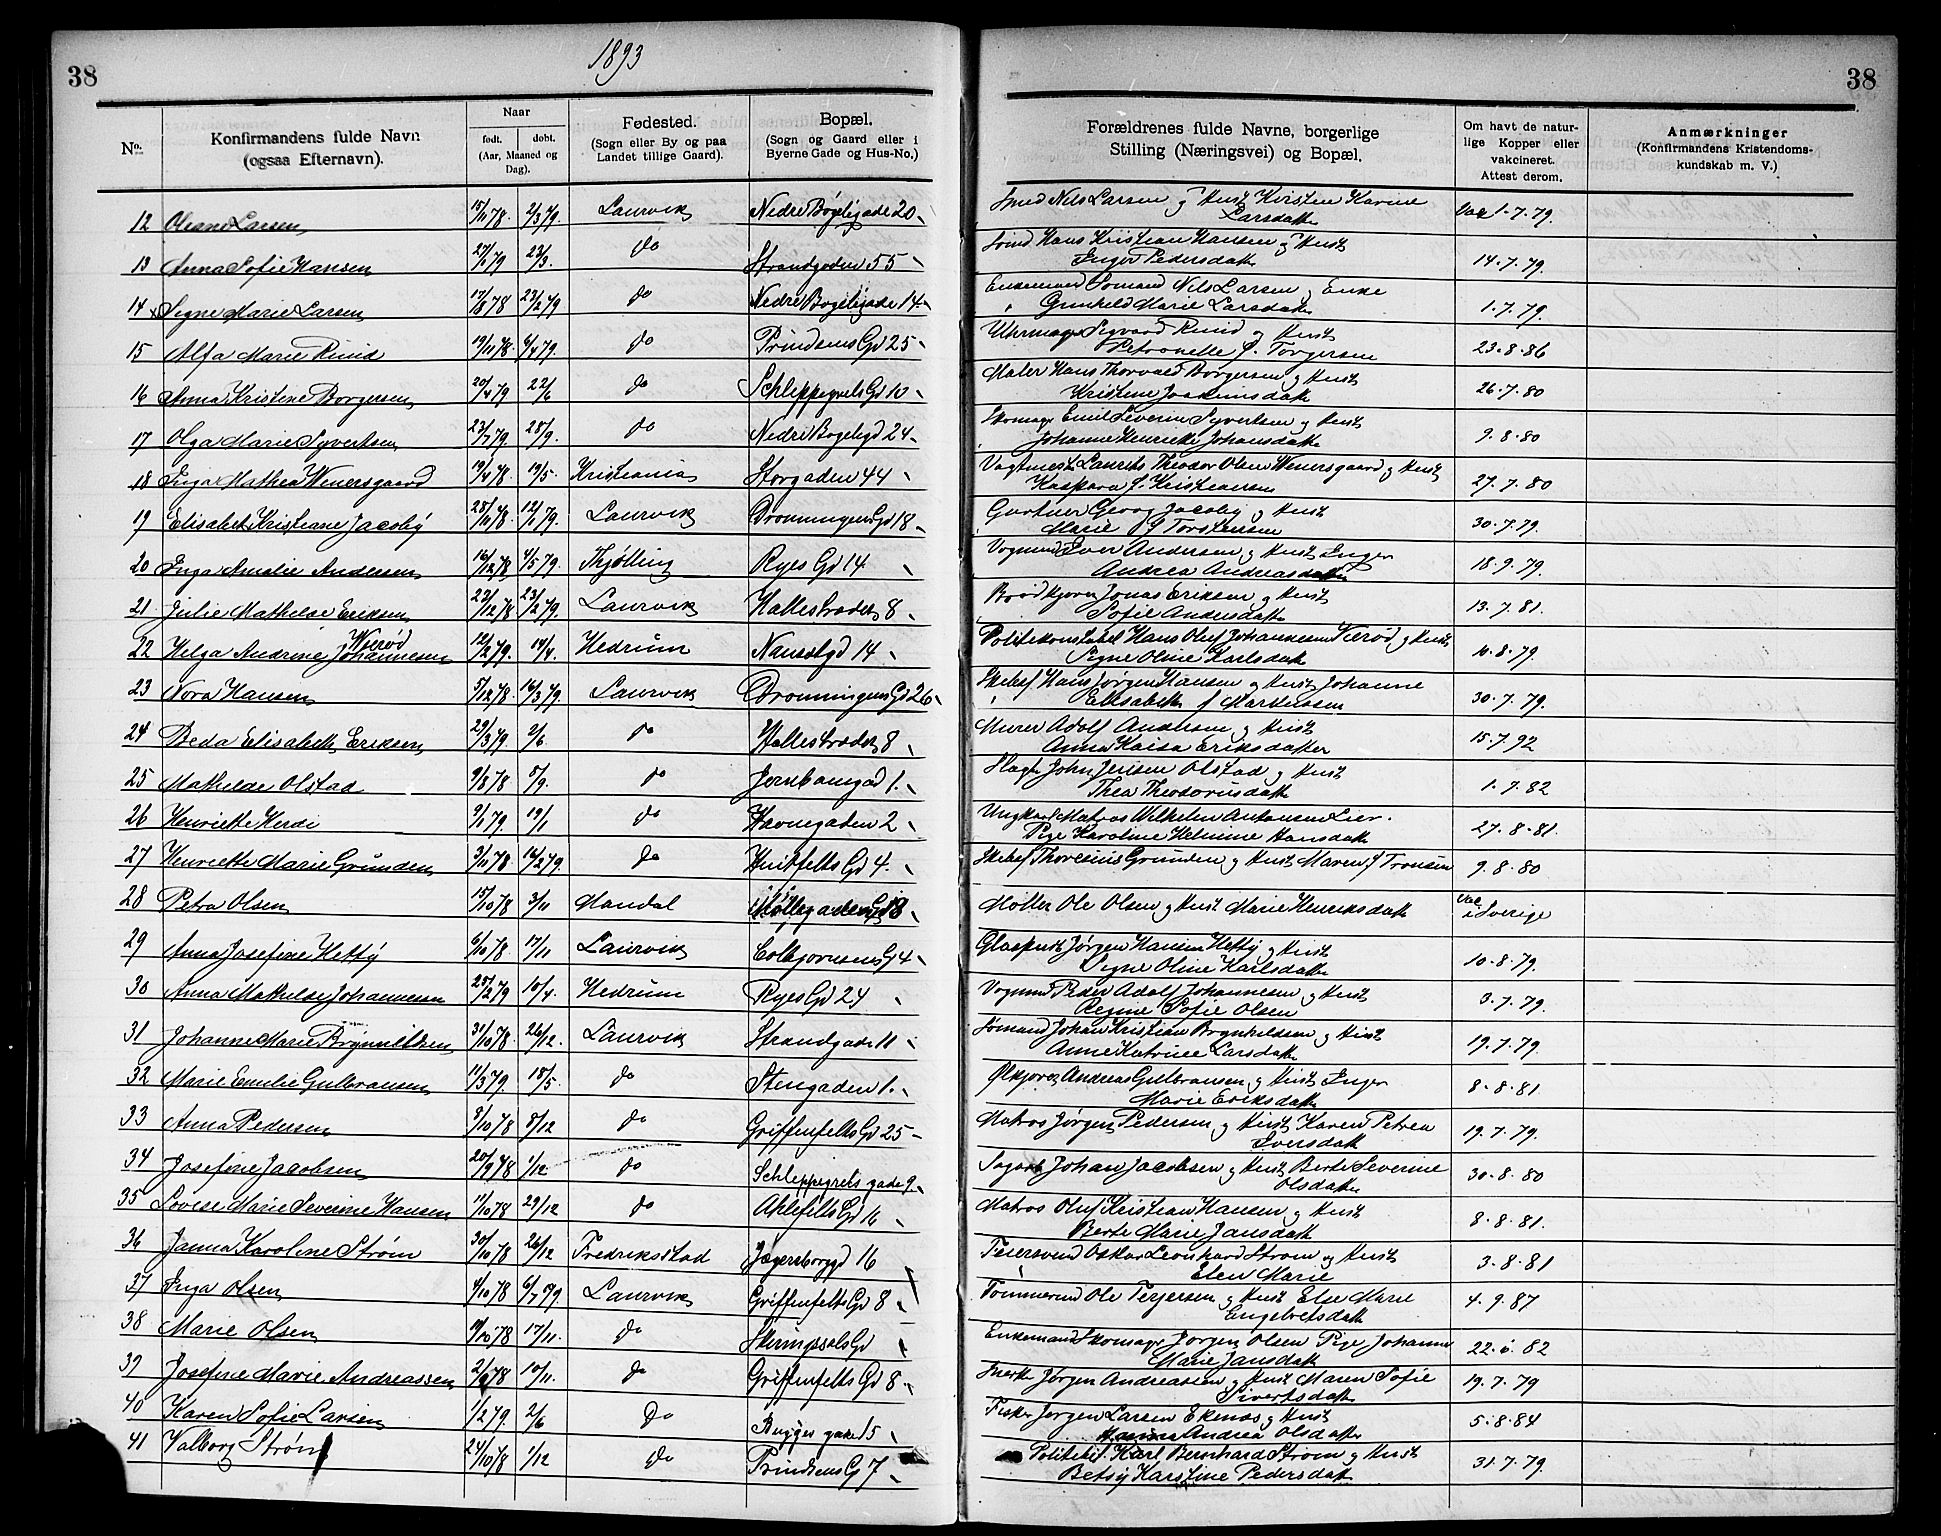 1893
38
38
No.
Konfirmandens fulde Navn (ogsaa Efternavn).
Naar
født. døbt.
(Aar, Maaned og Dag).
Fødested.
(Sogn eller By og paa Landet tillige Gaard).
Bopæl.
(Sogn og Gaard eller i Byerne Gade og Hus-No.)
Forældrenes fulde Navne, borgerlige Stilling (Næringsvei) og Bopæl.
Om havt de naturlige Kopper eller vakcineret. Attest derom.
Anmærkninger
(Konfirmandens Kristendomskundskab m. V.)
12 Larsen 15/11 78. 2/3 79. Laurvik Nedre Bøgeligade 20 Smed Nils Larsen og Hust Kirsten Karine Larsdatt Vac 1-7-79.
13 Anna Sofie Hansen 27/1 79 23/3. do Strandgaden 55 Hans Kristian Hansen og Hust Inger Pedersdatt 14-7-79.
14 Signe Marie Larsen 17/8 78 22/2 79 do Nedre Bøgeligade 14 Enkemand Sømand Nils Larsen og Enke Gunhild Marie Larsdatt 1-7-79.
15 Alfa Marie Rund 19/11 78. 6/4 79. do Prindsens Gd 25 Uhrmager Sigvard Rund og Hust Petronelle f. Torgersen 23-8-86
16 Anna Kristine Borgersen 20/4 79 22/6 do Schleppegrels Gd 10 Maler Hans Thorvald Borgersen og Hust Kristine Joakimsdatt 26-7-80
17 Olga Marie Syvertsen 23/7 79. 28/9. do Nedre Bøgeligd 24 Skomager Emil Severin Syvertsen og Hust Johanne Henriette Johansdatt 9-8-80
18 Inga Mathea Wenersgaard 19/4 78. 19/5. Kristiania Storgaden 44 Vagtmest. Laurits Theodor Olsen Wenersgaard og Hust Kaspara f. Kristiansen 27-7-80
19 Elisabet Kristiane Jacoby 28/11 78. 12/1 79. Laurvik Dronningens Gd 18 Gartner Georg Jacoby og Hust Marie f Torstensen 30-7-79.
20 Inga Amalie Andersen 16/12 78 4/5 79. Thjølling Ryes Gd 14 Vognmd Iver Andersen og Hust Inger Andrea Andreasdatter 18-9-79.
21 Julie Mathilde Eriksen 22/12 78 23/2 79. Laurvik Hallestrædet 8 Jonas Eriksen og Hust Sofie Andersdatt 13-7-81.
22 Helga Andrine Johannesen Vierød 12/2 79. 14/4. Hedrum Nansetgd 14 Politikonstabel Hans Oluf Johannesen Vierød og Hust Signe Oline Karlsdatt 11-8-79.
23 Nora Hansen 5/12 78. 16/3 79. Laurvik Dronningens Gd 26 Skibsf Hans Jørgen Hansen og Hust Johanne Elisabeth f Markussen 30-7-79.
24 Beda Elisabeth Eriksen 29/3 79. 2/6. do Hallestrædet 8 Murer Adolf Andersen og Hust Anna Kaisa Eriksdatter 15-7-92
25 Mathilde Olstad 9/8 78 8/9. do Jernbanegad 1. Slagter John Jensen Olstad og Hust Thea Theodorusdatt 1-7-82
26 Henriette Herdi 9/1 79. 19/1 do Havnegaden 2 Ungkarl Matros Wilhelm Antonsen Lier. Pige Karoline Helmine Hansdatt 27-8-81.
27 Henriette Marie Grunden 3/11 78. 14/2 79. do Huitfelts Gd 4. Skibsf Thoresius Grunden og Hust Maren f Tronsen 9-8-80
28 Petra Olsen 15/10 78 3/11 Mandal Møllegaden 18 Møller Ole Olsen og Hust Marie Henriksdatt Vac i Sverige
29 Anna Josefine Hetty 6/10 78. 17/11 Laurvik Colbjørnsens Gd 4 Glaspuster Jørgen Hansen Hetty og Hust Signe Oline Karlsdatt 10-8-79.
30 Anna Mathilde Johannesen 25/2 79 10/4. Hedrum Ryes Gd 24 Vognmd Peder Adolf Johannesen og Hust Regine Sofie Olsen 3-7-79.
31 Johanne Marie Brynnildsen 31/10 78. 26/12. Laurvik Strandgade 11 Sømand Johan Kristian Brynhildsen og Hust Anne Katrine Larsdatt 19-7-79.
32 Marie Emilie Gulbransen 11/3 79 18/5. do Stengaden 1. Ølkjører Andreas Gulbransen og Hust Inger Marie Eriksdatt 8-8-81.
33 Anna Pedersen 8/10 78 8/12 do Griffenfelts Gd 25 Matros Jørgen Pedersen og Hust Karen Petrea Iversdatt 19-7-79.
34 Josefine Jacobsen 20/9 78 1/12 do Schleppegrels gade 9 Sagarb Johan Jacobsen og Hust Berte Severine Olsdatt 30-8-80
35 Lovise Marie Severine Hansen 11/10 78 29/12 do Ahlefelts Gd 16 Matros Oluf Kristian Hansen og Hust Berte Marie Jansdatt 8-8-81.
36 Janna Karoline Strøm 30/10 78 26/12 Fredriksstad Jægersborggd 16 Feiersvend Oskar Leonhard Strøm og Hust Elen Marie 3-8-81
37 Inga Olsen 4/10 78 6/7 79. Laurvik Griffenfelts Gd 8 Tømmermd Ole Terjersen og Hust Else Marie Engebretsdatt 4-9-87
38 Marie Olsen 11/10 78 17/11. do Skiringssals Gd Enkemand Skomager Jørgen Olsen Pige Johanne Marie Jansdatt 22-6-82
39 Josefine Marie Andreassen 2/9 78 10/11. do Griffenfelts Gd 8 Jørgen Andreasen og Hust Maren Sofie Sivertsdatt 19-7-79
40 Karen Sofie Larsen 1/2 79. 2/6 do Bugges gade 15 Fisker Jørgen Larsen Ekenæs og Hust Andrea Olsdatt 5-8-84
41 Valborg Strøm 24/10 78 1/12 do Prindsens Gd 7 Politibtj. Karl Bernhard Strøm og Hust Betsy Karstine Pedersdatt 31-7-79.